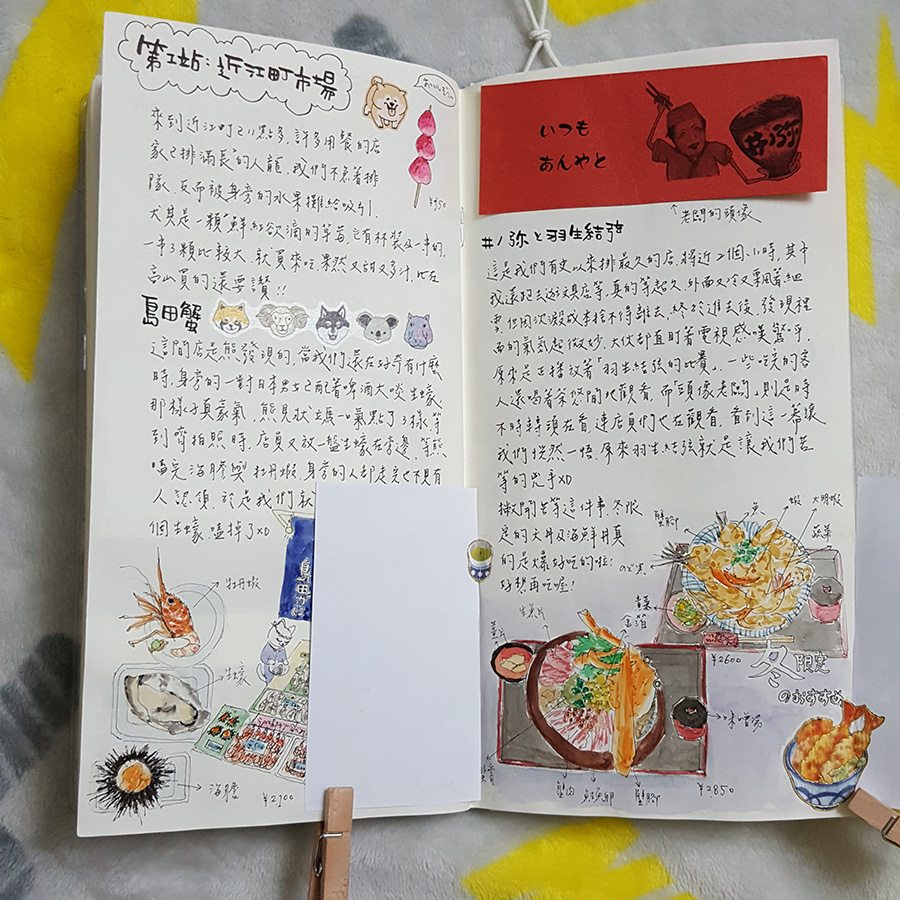 第2站:近江町市場
來到近江町已11點多,許多用餐的店
家已排滿長長的人龍,我們不急著排
隊,反而被身旁的水果攤給吸引.
尤其是一顆顆鮮紅欲滴的草莓,它有杯裝及一串的,
一串3顆比較大,就買來吃,果然又甜又多汁,比在
高山買的還要讚!!
¥350
島田蟹
這間店是熊發現的,當我們還在好奇有什麼
時,身旁的一對日本男女已配著啤酒大啖生蠔,
那樣子真豪氣,熊見狀立馬一口氣點了3樣,等
到齊拍照時,店員又放一盤生蠔在旁邊,等熊
嗑完海膽與牡丹蝦,身旁的人都走完也不見有
人認領,於是我們就
個生蠔嗑掉了XD
牡丹蝦
生蠔
海膽
¥2,100
島田
いつも
あんやと
弥
↑老闆的頭像
#1 弥と羽生結弦
這是我們有史以來排最久的店,將近2個小時,其中
我還跑去逛文具店等,真的等超久,外面又冷又飄著細
雪,但因沈澱成本捨不得離去,終於進去後,發現裡
面的氣氛超微妙,大伙都直盯著電視感嘆驚呼,
原來是正播放著「羽生結弦的比賽」,一些吃完的客
人還喝著茶悠閒地觀看,而「頭像老闆」則是時
不時轉頭在看,連店員們也在觀看,看到這一幕讓
我們恍然一悟,原來羽生結弦就是讓我們苦
等的兇手XD
撇開苦等這件事,冬限
定的天丼及海鮮丼真
的是爆好吃的啦!
好想再吃喔!
蟹腳
魚
蝦
大明蝦
蔬菜
のど黒
¥2600
冬限定
のおすすめ
生魚片
青菜
金箔
薑片
味噌湯
蟹肉
鮭魚卵
蟹腳
¥3,850